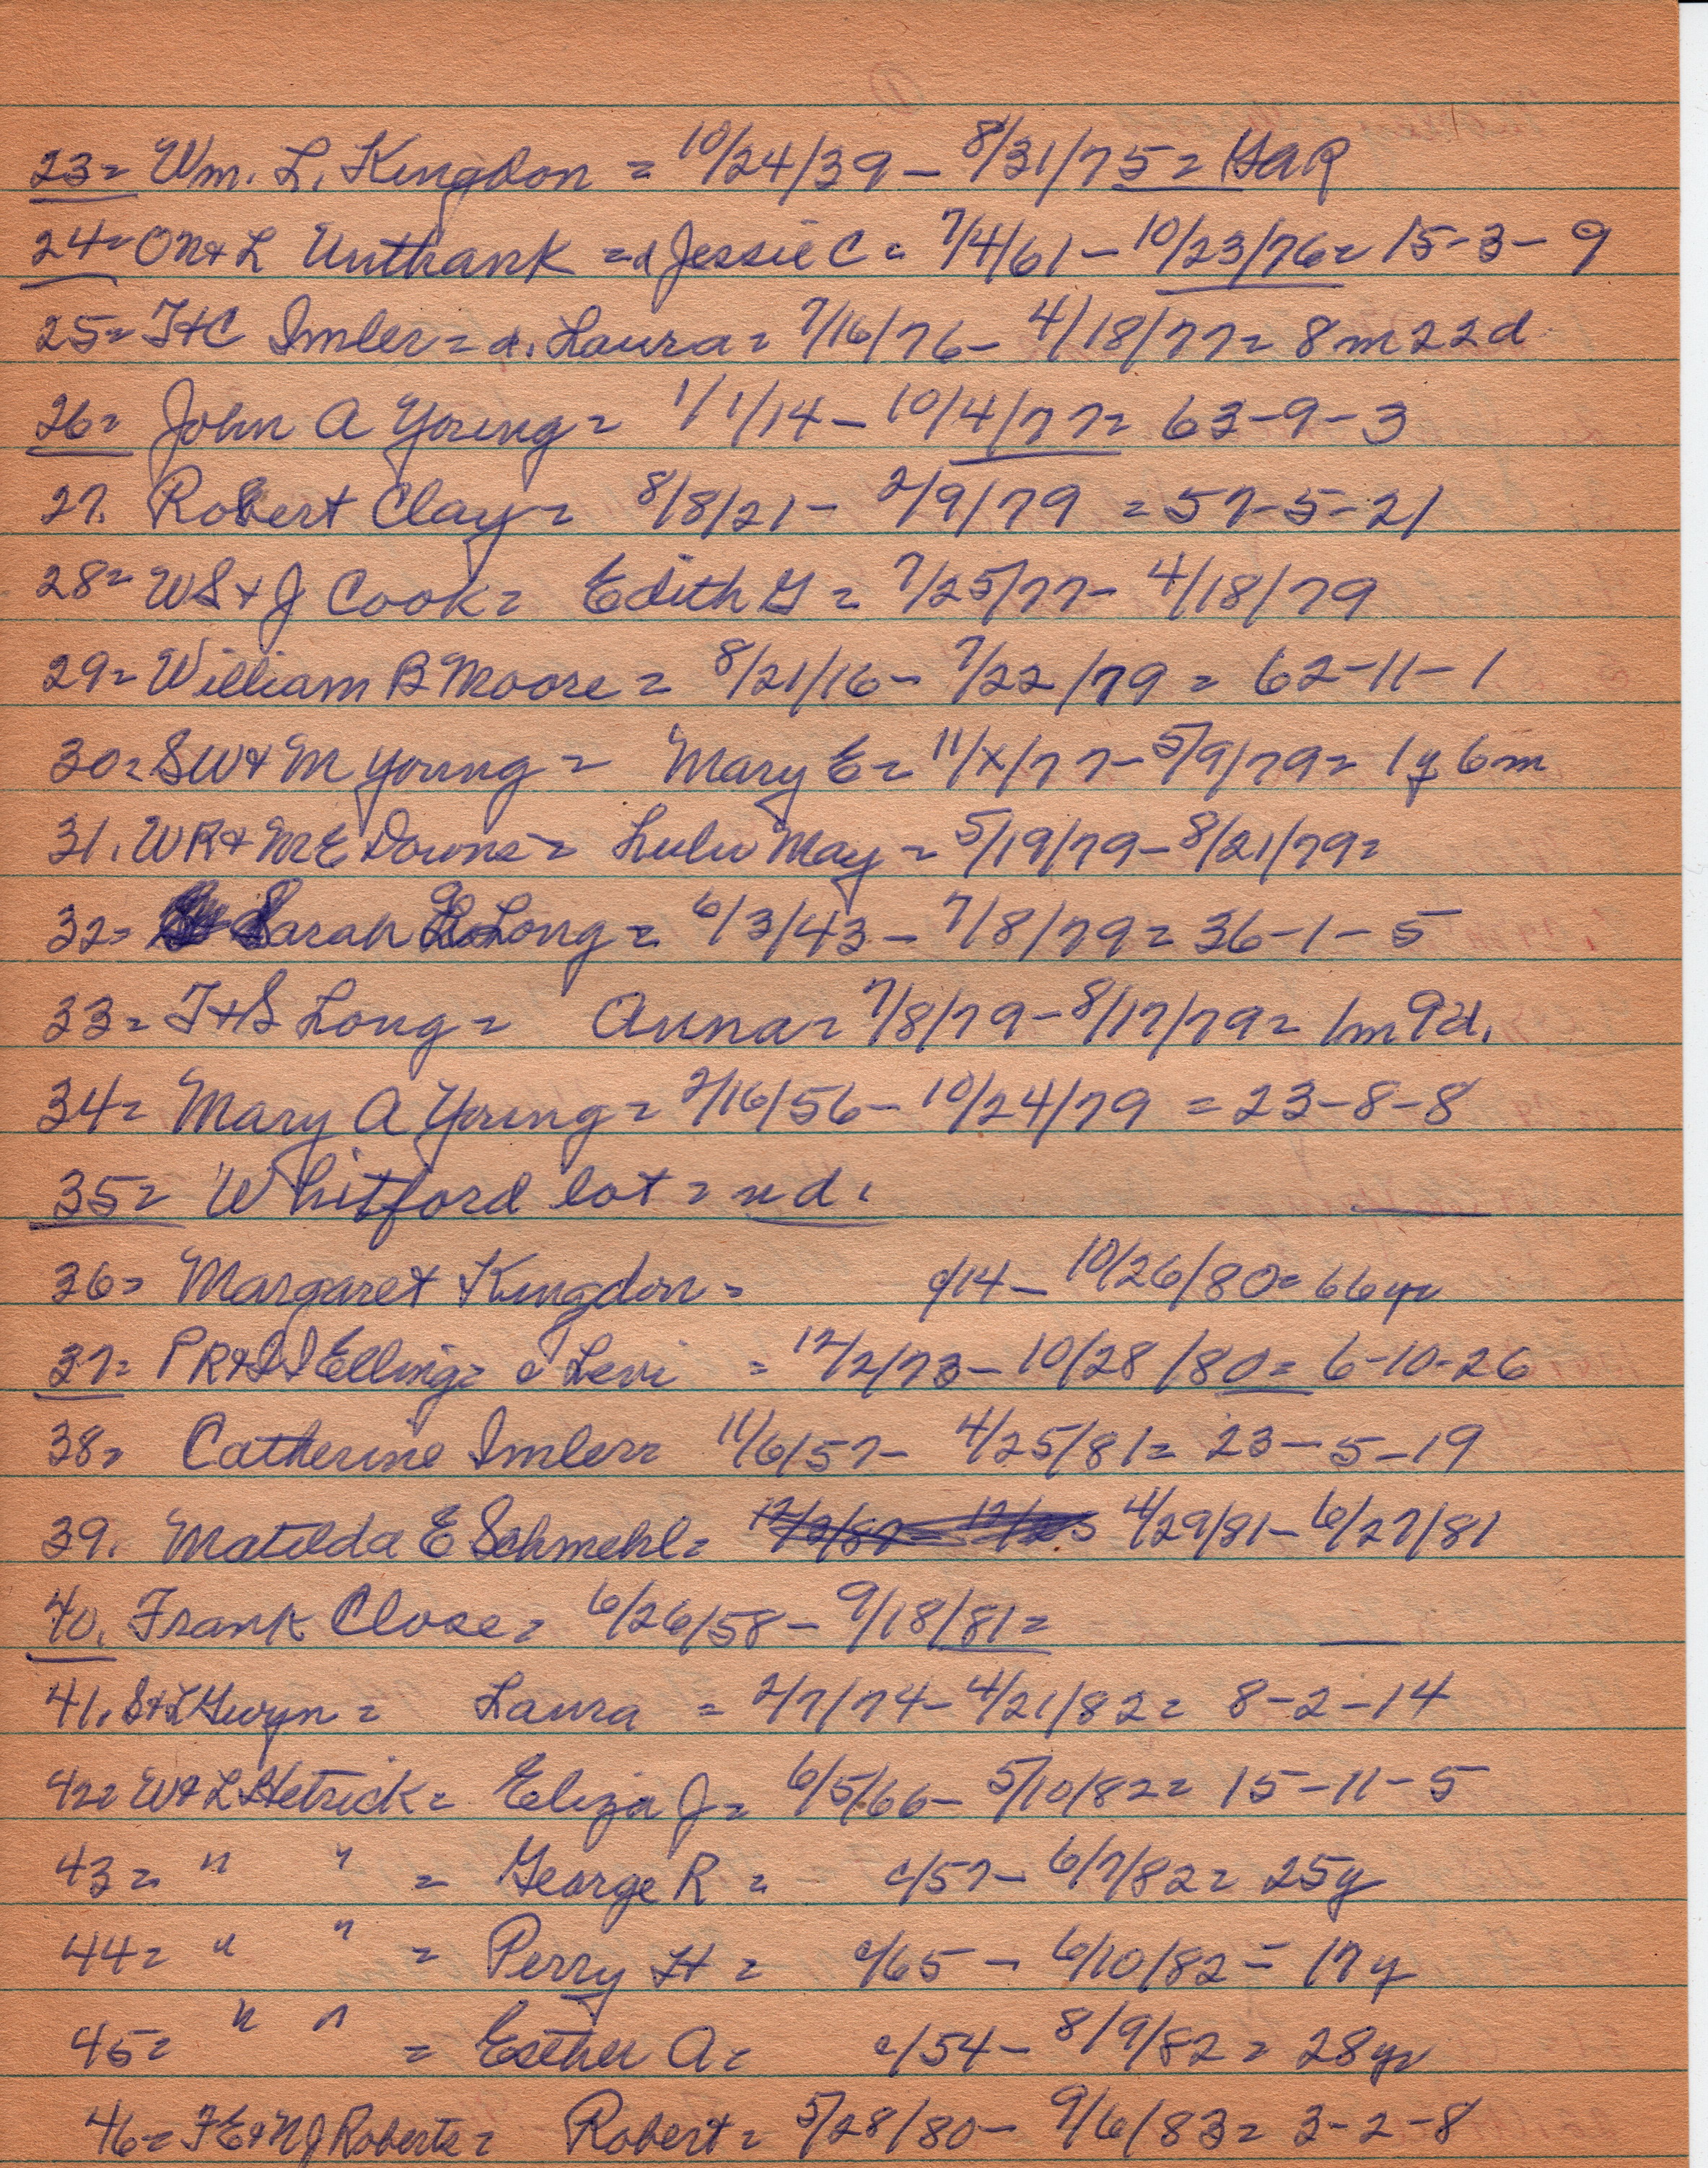 23= Wm. L. Kingdon = 10/24/39 – 8/31/75 = GAR
24= ON & L Unthank = d Jessie C = 7/4/61 – 10/23/76 = 15-3-9
25= T & C Imler = d. Laura = 7/16/76 – 4/18/77 = 8m 22d
26= John A Young = 1/1/14 – 10/4/77 = 63-9-3
27. Robert Clay = 8/8/21 – 2/9/79 = 57-5-21
28= WS & J Cook = Edith G = 7/25/77 – 4/18/79
29= William B Moore = 8/21/16 – 7/22/79 = 62-11-1
30= SW & M Young = Mary E = 11/x/77 – 5/9/79 = 1y 6m
31. WR & ME Downs = Lulu May = 5/19/79 – 8/21/79 =
32= Sarah Long = 6/3/43 – 7/8/79 = 36-1-5
33= T & S Long = Anna = 7/8/79 – 8/17/79 = 1m 9d.
34= Mary A Young = 2/16/56 – 10/24/79 = 23-8-8
35= Whitford lot = nd.
36= Margaret Kingdon = c/14 – 10/26/80 = 66yr
37= PR & Elling = c Levi = 12/2/73 – 10/28/80 = 6-10-26
38= Catherine Imler = 11/6/57 – 4/25/81 = 23-5-19
39. Matilda E Schmehl = 4/29/81 – 6/27/81
40. Frank Close = 6/26/58 – 9/18/81 =
41. S & L Gwyn = Laura = 2/7/74 – 4/21/82 = 8-2-14
42= W & L Hetrick = Eliza J = 6/5/66 – 5/10/82 = 15-11-5
43= " " = George R = c/57 – 6/7/82 = 25y
44= " " = Perry H = c/65 – 6/10/82 = 17y
45= " " = Esther A = c/54 – 8/9/82 = 28yr
46= FE & NJ Roberts = Robert = 5/28/80 – 9/6/83 = 3-2-8